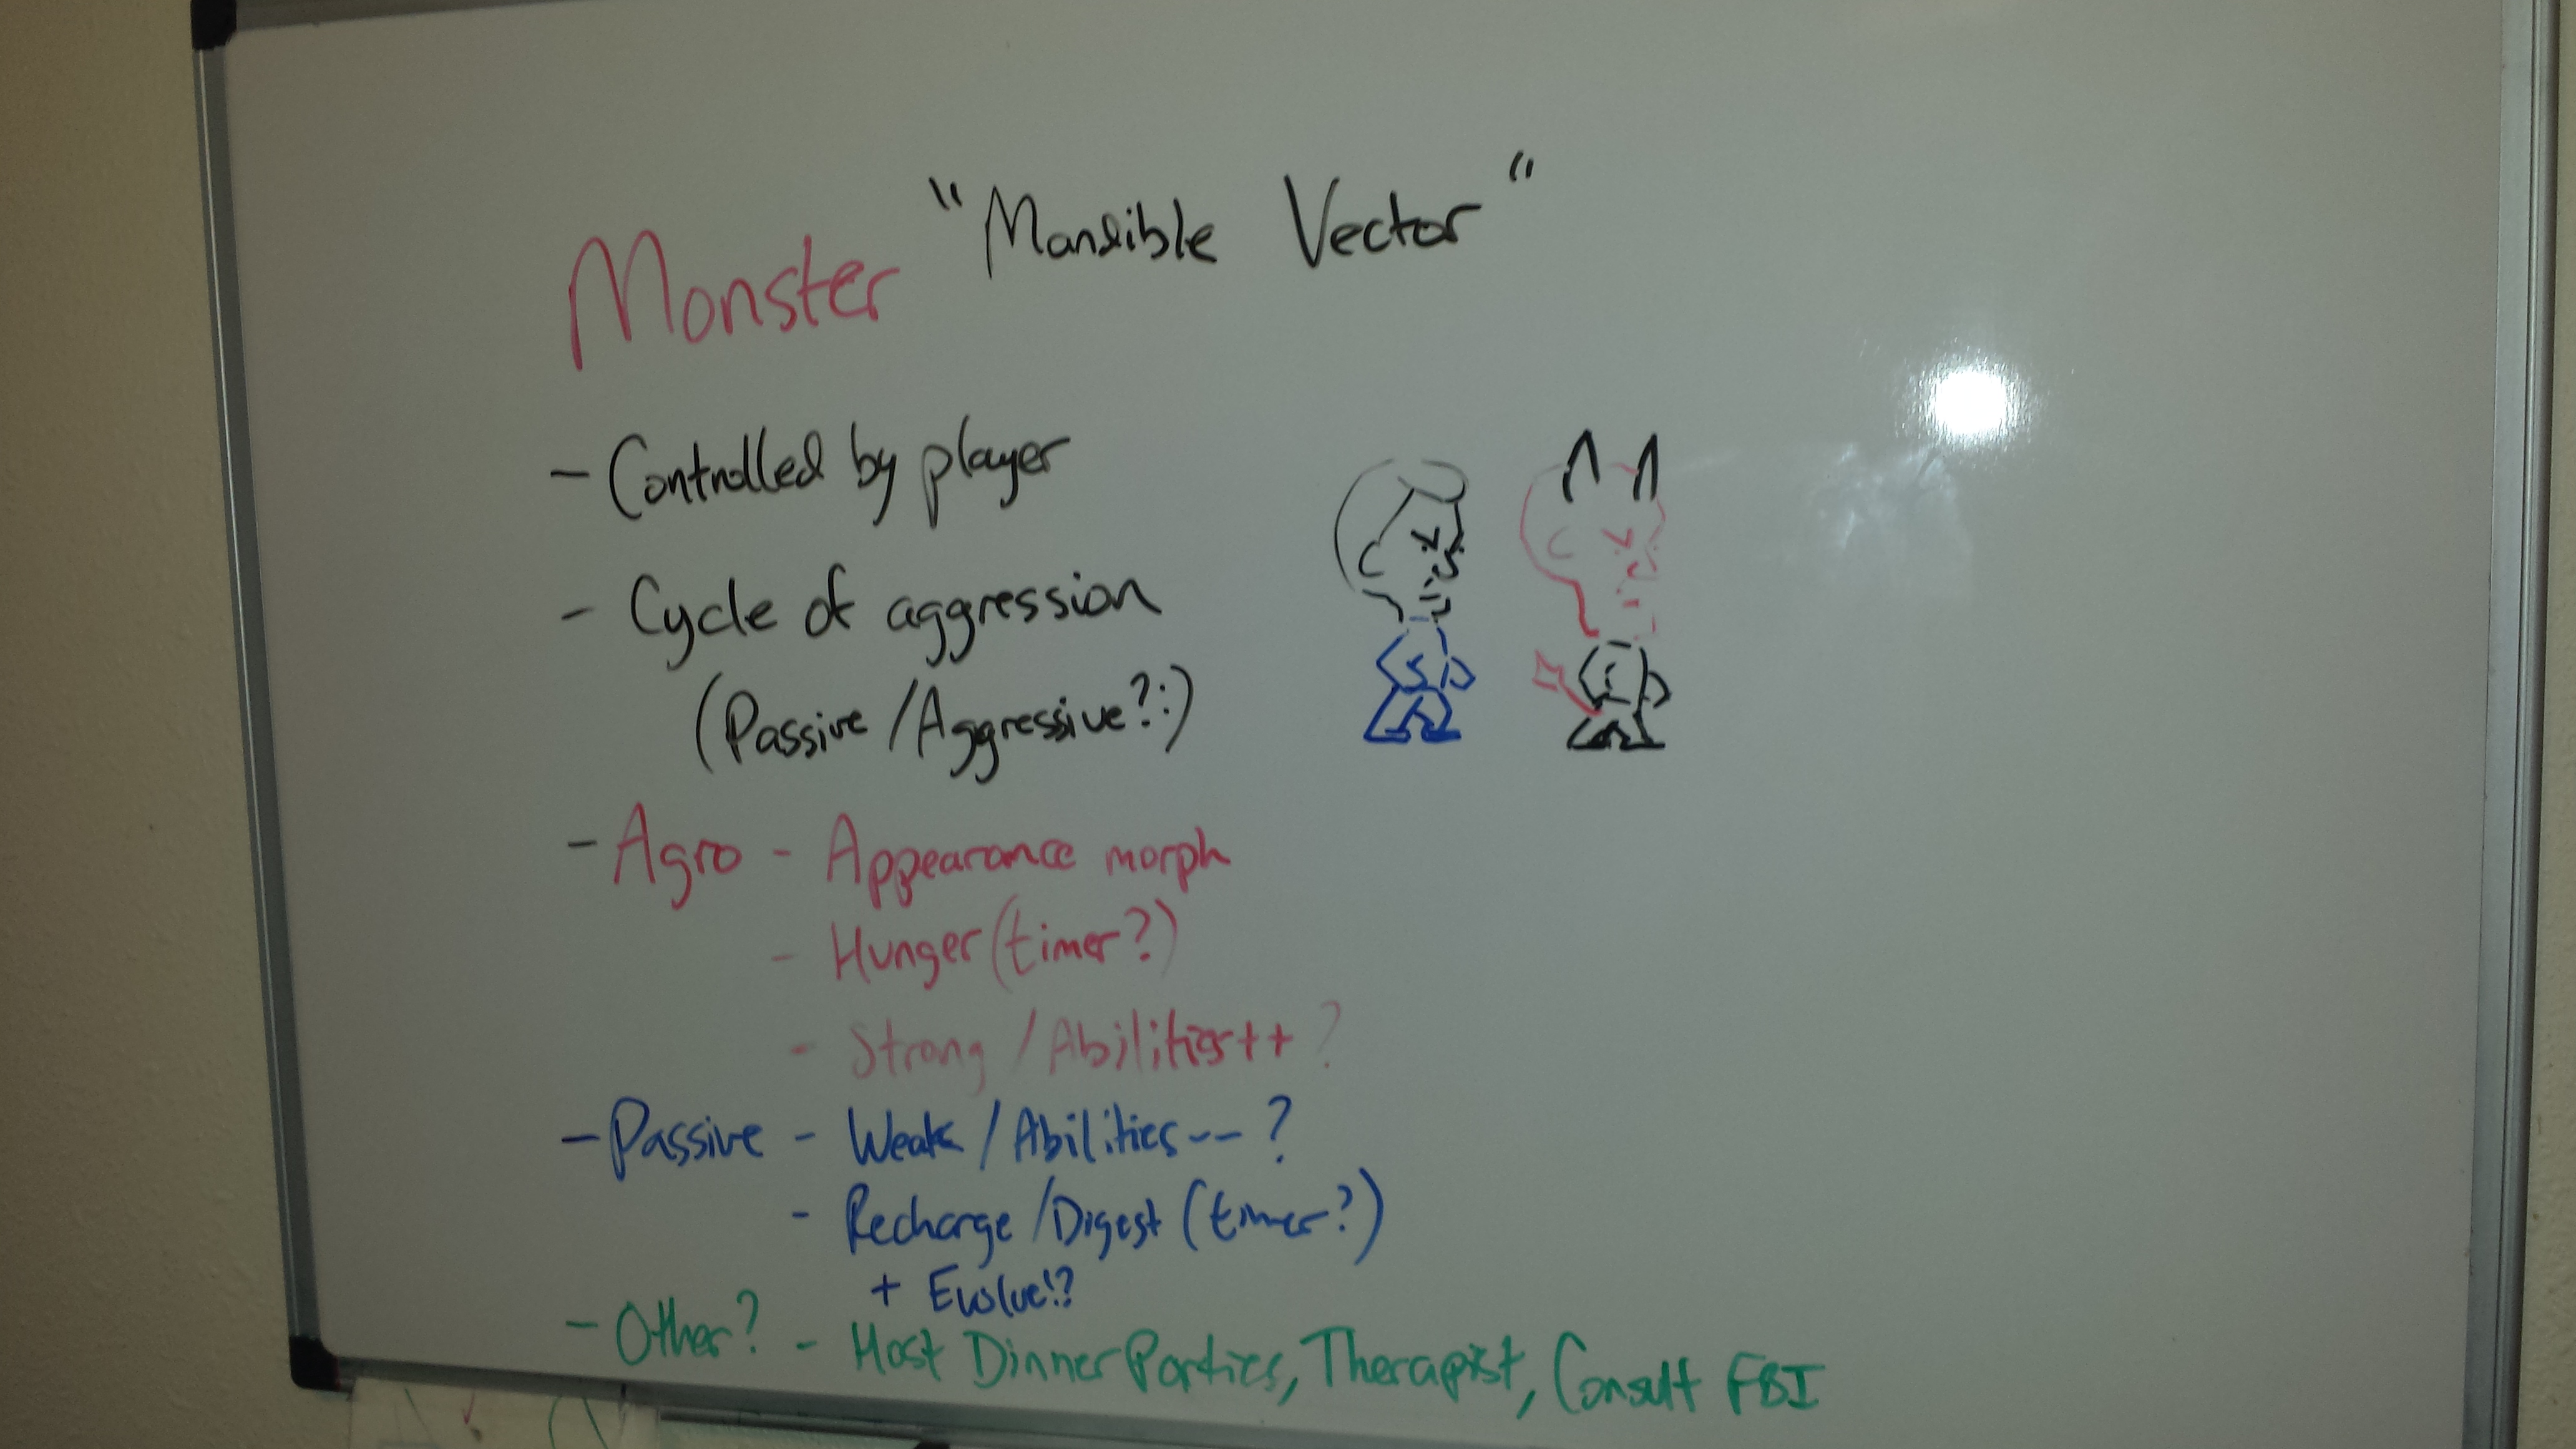 Monster "Mandible Vector"
- Controlled by player
- Cycle of aggression
(Passive/Aggressive?:)
- Agro - Appearance morph
- Hunger (timer?)
- Strong/Abilities++?
- Passive - Weak/Abilities--?
- Recharge/Digest (timer?)
+ Evolve!?
- Other? - Host Dinner Parties, Therapist, Consult FBI